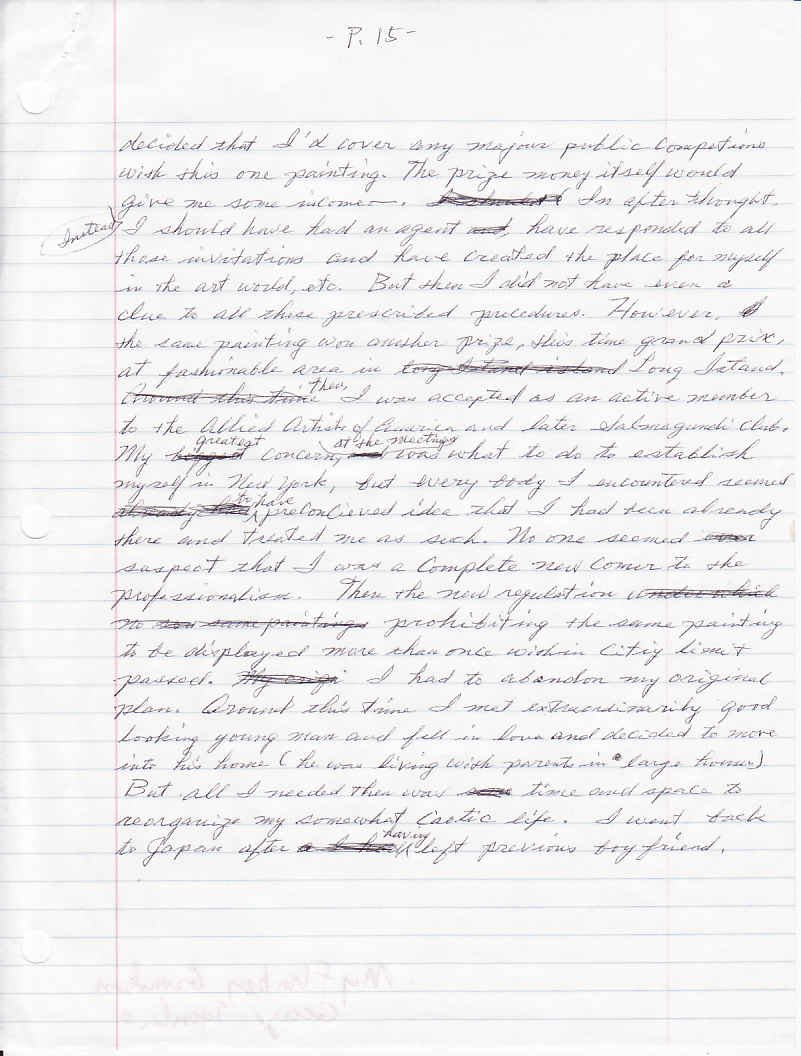 - P. 15 -
decided that I'd cover any majour public competions
with this one painting. The prize money itself would
give me some income. In after thought.
Instead I should have had an agent, have responded to all
those invitations and have created the place for myself
in the art world, etc. But then I did not have even a
clue to all these prescribed precedures. However,
the same painting won another prize, this time grand prix,
at fashionable area in Long Island.
then, I was accepted as an active member
to the Allied Artists of America and later Salmagundi Club.
My greatest concern, at the meetings was what to do to establish
myself in New York, but every body I encountered seemed
to have preconcieved idea that I had been already
there and treated me as such. No one seemed
suspect that I was a complete new comer to the
professionalism. Then the new regulation
prohibiting the same painting
to be displayed more than once within citiy limit
passed. I had to abandon my original
plan. Around this time I met extraordinarily good
looking young man and fell in love and decided to move
into his home (he was living with parents in a large house)
But all I needed then was time and space to
reorganize my somewhat caotic life. I went back
to Japan after having left previous boy friend.